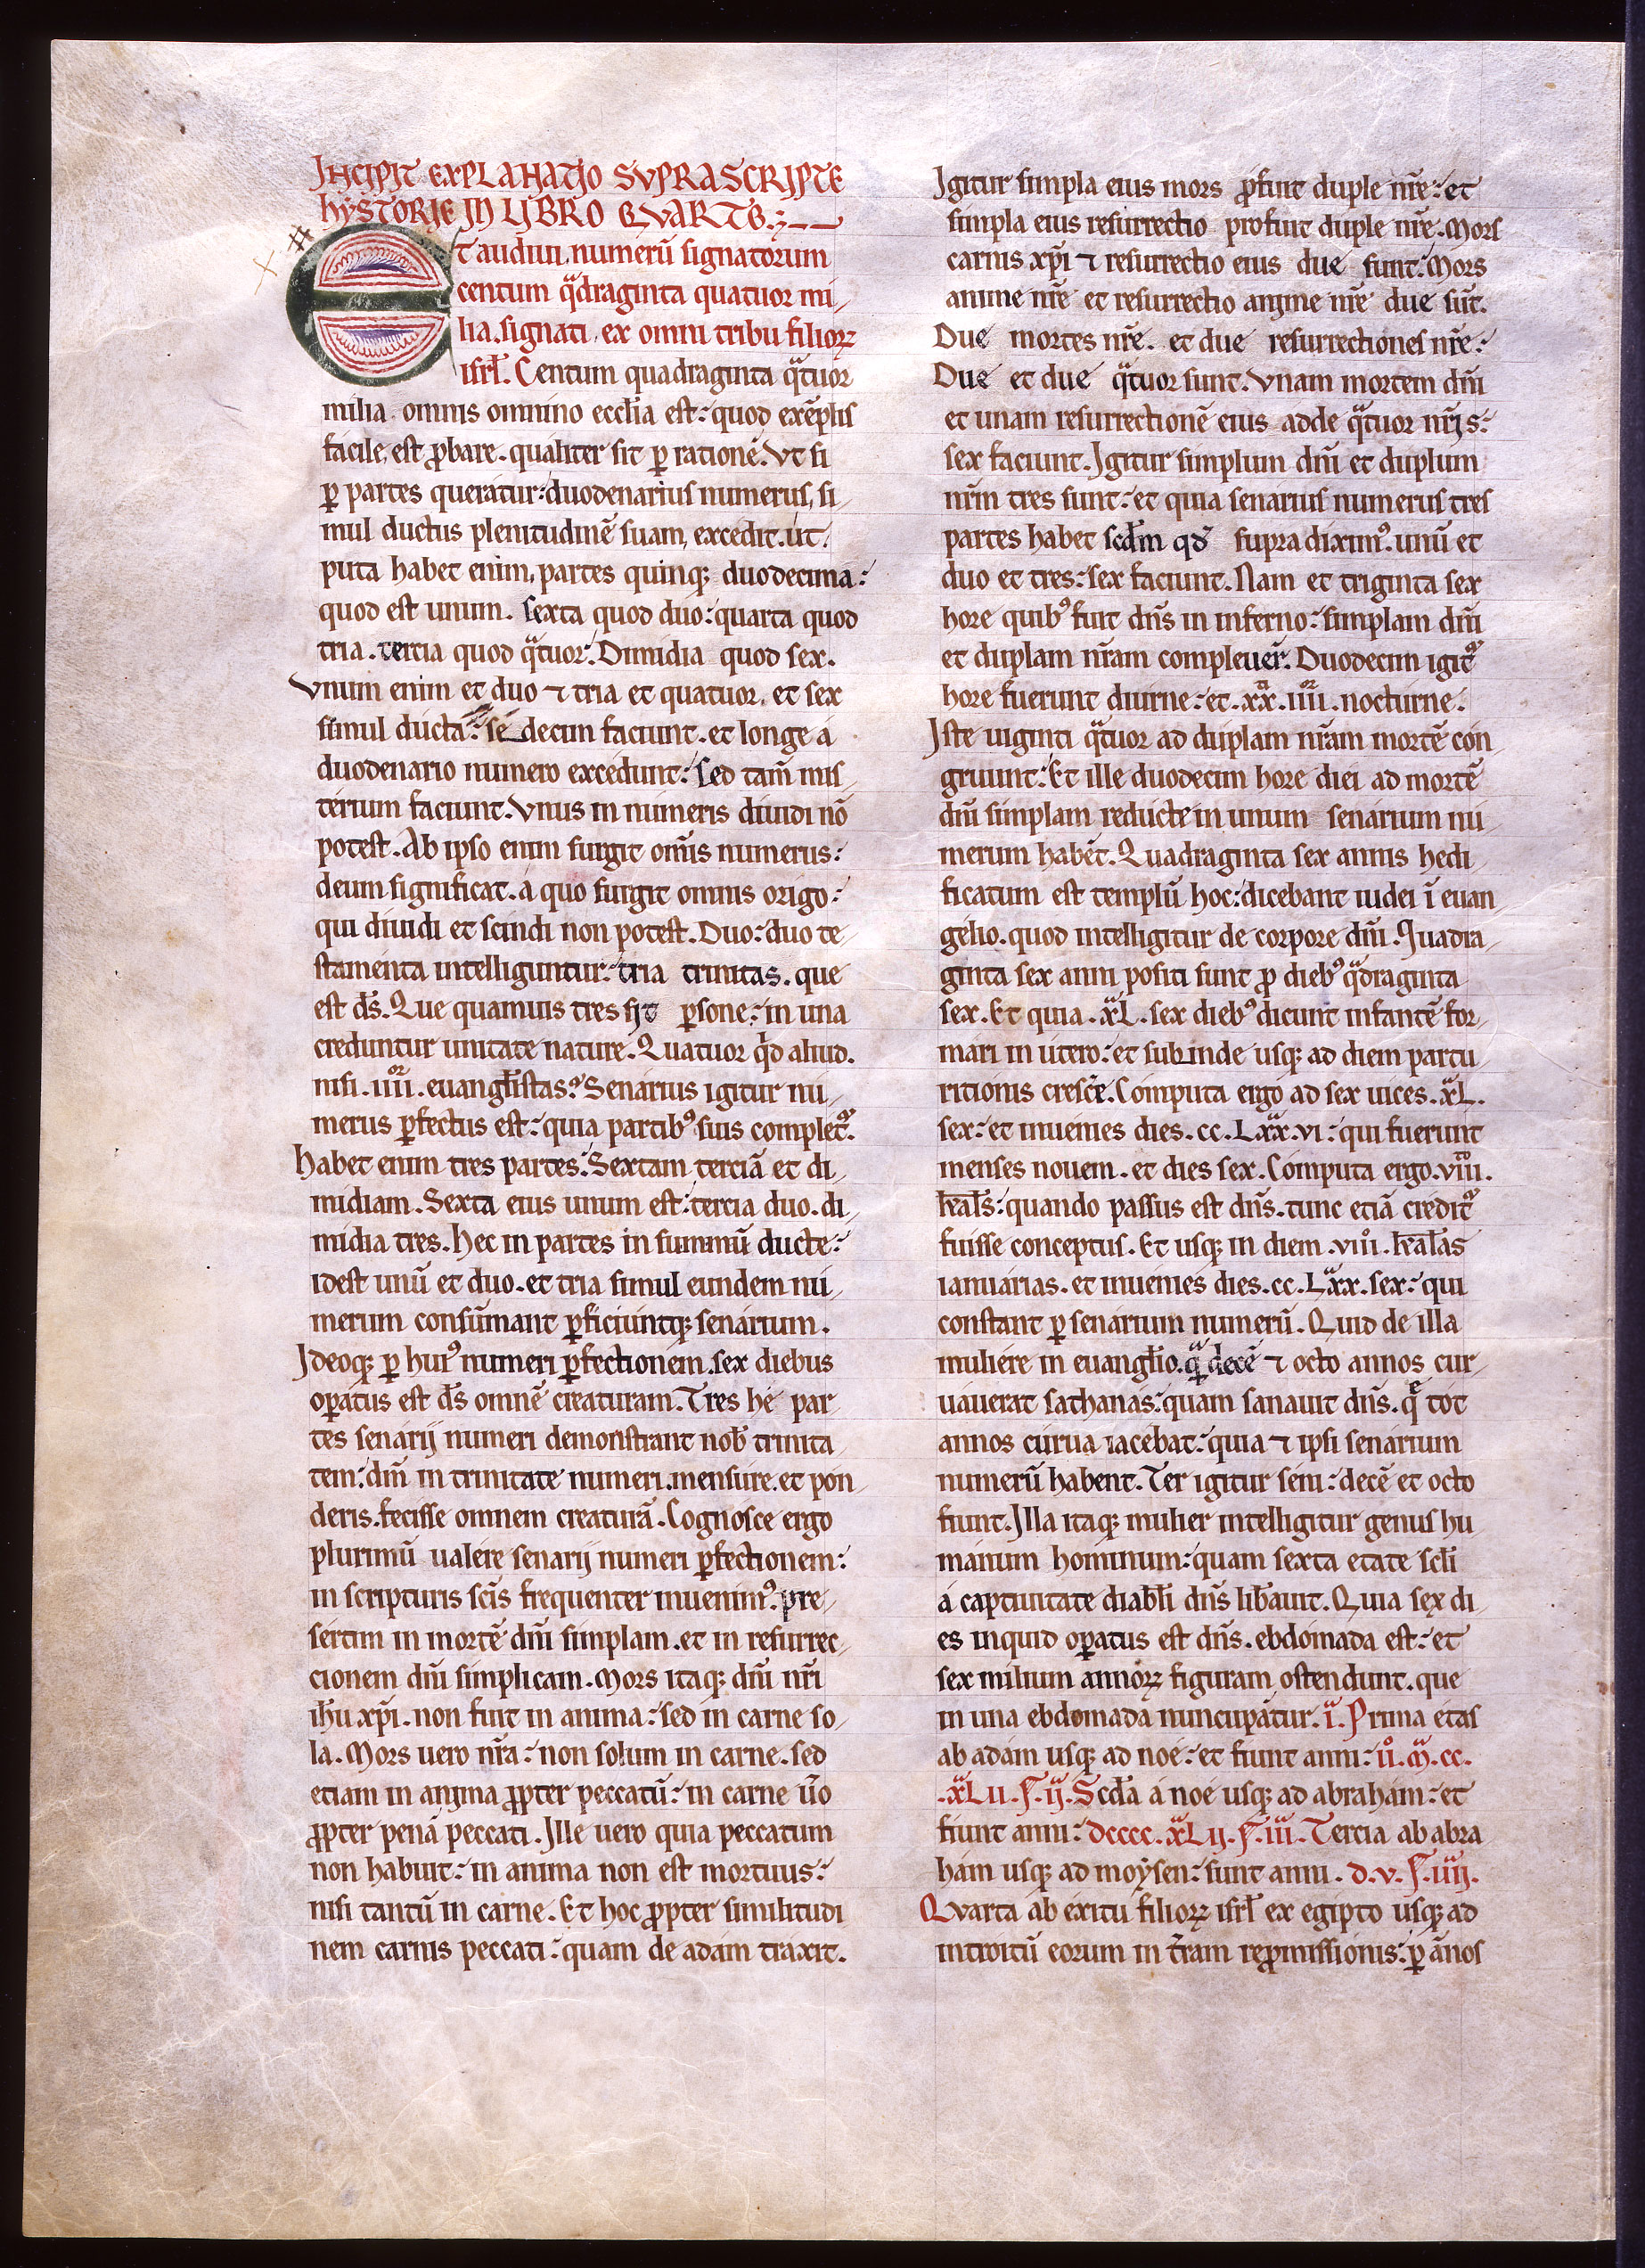 INCIPIT EXPLANATIO SVPRASCRIPTE
HYSTORIE IN LIBRO QVARTO.
Et audiui numerū signatorum
centum qᵃdraginta quatuor mi
lia. signati. ex omni tribu filioꝝ
isrl̄. Centum quadraginta qᵃtuor
milia. omnis omnino eccl̄ia est: quod exēplis
facile est ꝓbare. qualiter sit ꝑ rationē. Vt si
ꝑ partes queratur: duodenarius numerus, si
mul ductus plenitudinē suam, excedit. ut
puta habet enim, partes quinqꝫ duodecima:
quod est unum. sexta quod duo: quarta quod
tria. tercia quod qᵃtuor. Dimidia quod sex.
Vnum enim et duo ⁊ tria et quatuor. et sex
simul ducta: sedecim faciunt. et longe a
duodenario numero excedunt: sed tam̄ mis
terium faciunt. Vnus in numeris diuidi nō
potest. Ab ipso enim surgit om̄is numerus:
deum significat. a quo surgit omnis origo:
qui diuidi et scindi non potest. Duo: duo te
stamenta intelliguntur: tria trinitas. que
est dṡ. Que quamuis tres sīt ꝑsone: in una
creduntur unitate nature. Quatuor qⁱd aliud.
nisi .iiiiᵒʳ. euangl̄istas? Senarius igitur nu
merus ꝑfectus est: quia partibꝰ suis completᷣ.
Habet enim tres partes: Sextam terciā et di
midiam. Sexta eius unum est: tercia duo. di
midia tres. Hec in partes in summū ducte:
idest unū et duo. et tria simul eundem nu
merum consūmant ꝑficiuntqꝫ senarium.
Ideoqꝫ ꝑ huiꝰ numeri ꝑfectionem. sex diebus
oꝑatus est dṡ omnē creaturam. Tres he par
tes senarij numeri demonstrant nob̄ trinita
tem: dm̄ in trinitate numeri. mensure. et pon
deris. fecisse omnem creaturā. Cognosce ergo
plurimū ualere senarij numeri ꝑfectionem:
in scripturis scīs frequenter inuenimꝰ. pre
sertim in mortē dn̄i simplam. et in resurrec
cionem dn̄i simplicam. Mors itaqꝫ dn̄i nr̄i
ih̄u xp̄i. non fuit in anima: sed in carne so
la. Mors uero nr̄a: non solum in carne. sed
etiam in anima ꝓpter peccatū: in carne ūo
ꝓpter penā peccati. Ille uero quia peccatum
non habuit: in anima non est mortuus:
nisi tantū in carne. Et hoc ꝓpter similitudi
nem carnis peccati: quam de adam traxit.
Igitur simpla eius mors ꝓfuit duple nr̄e: et
simpla eius resurrectio profuit duple nr̄e. Mors
carnis xp̄i ⁊ resurrectio eius due sunt: Mors
anime nr̄e et resurrectio anime nr̄e due sūt.
Due mortes nr̄e. et due resurrectiones nr̄e:
Due et due qᵃtuor sunt. Vnam mortem dn̄i
et unam resurrectionē eius adde qᵃtuor nr̄is:
sex faciunt. Igitur simplum dn̄i et duplum
nr̄m tres sunt: et quia senarius numerus tres
partes habet scd̄m qd̄ supra diximꝰ. unū et
duo et tres: sex faciunt. Nam et triginta sex
hore quibꝰ fuit dn̄s in inferno: simplam dn̄i
et duplam nr̄am compleuer̄. Duodecim igitᷣ
hore fuerunt diurne: et .xxᵃ.iiiiᵒʳ. nocturne:
Iste uiginti qᵃtuor ad duplam nr̄am mortē con
gruunt: Et ille duodecim hore diei ad mortē
dn̄i simplam reducte in unum senarium nu
merum habēt. Quadraginta sex annis hedi
ficatum est templū hoc: dicebant iudei ī euan
gelio. quod intelligitur de corpore dn̄i. Quadra
ginta sex anni positi sunt ꝓ diebꝰ qᵃdraginta
sex. Et quia .xᵃL. sex diebꝰ dicunt infantē for
mari in utero: et subinde usqꝫ ad diem partu
ritionis crescē. Computa ergo ad sex uices .xᵃL.
sex: et inuenies dies .cc.Lxxᵃ.vi: qui fuerunt
menses nouem. et dies sex. Computa ergo .viiiᵒ.
kal̄s: quando passus est dn̄s. tunc etiā creditᷣ
fuisse conceptus. Et usqꝫ in diem .viiiᵒ. kal̄as
ianuarias. et inuenies dies .cc.Lxxᵃ. sex: qui
constant ꝑ senarium numerū. Quid de illa
muliere in euangl̄io. qᵃ̄ decē ⁊ octo annos cur
uauerat sathanas: quam sanauit dn̄s. qᵉ tot
annos curua iacebat: quia ⁊ ipsi senarium
numerū habent. Ter igitur seni: decē et octo
fiunt. Illa itaqꝫ mulier intelligitur genus hu
manum hominum: quam sexta etate scl̄i
a captiuitate diabl̄i dn̄s lib̄auit. Quia sex di
es inquid oꝑatus est dn̄s. ebdomada est: et
sex milium annoꝝ figuram ostendunt. que
in una ebdomada nuncupātur. iᵃ. Prima etas
ab adam usqꝫ ad noe: et fiunt anni: iiᵒ.m̄.cc.
.xᵃLii.S.ijᵃ. Scd̄a a noe usqꝫ ad abraham: et
fiunt anni: dcccc.xᵃLij.S.iiiᵃ. Tercia ab abra
ham usqꝫ ad moẏsen: sunt anni .d.v.S.iiijᵃ.
Qvarta ab exitu filioꝝ isrl̄ ex egipto usqꝫ ad
introitū eorum in t̄ram reꝓmissionis: ꝑ ānos